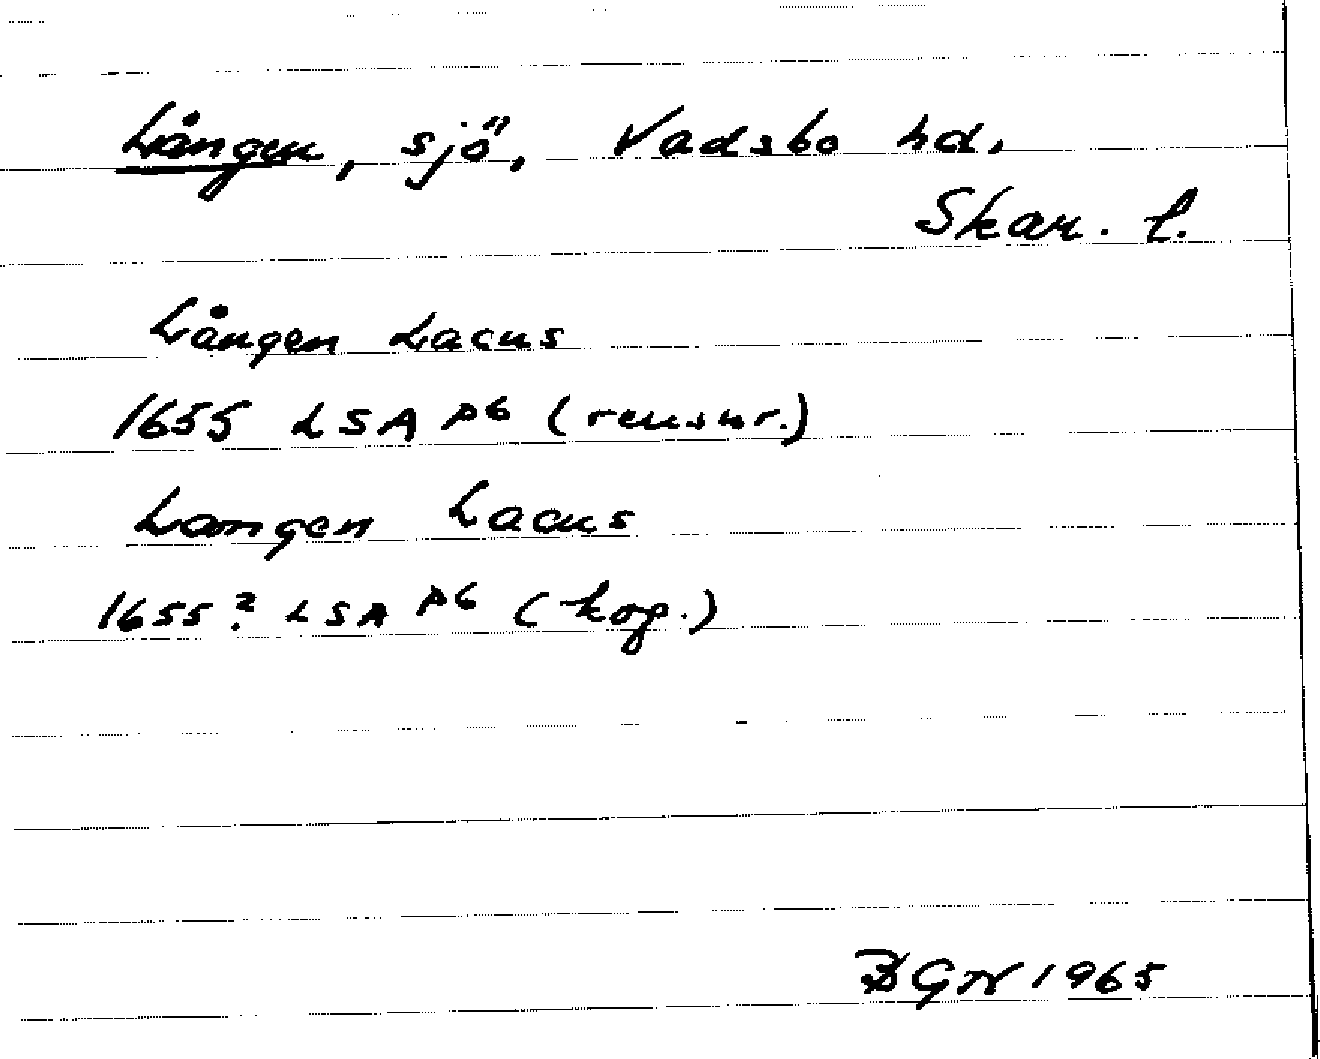 Lången, sjö, Vadsbo hd,
Skar. l.
Lången Lacus
1655 LSA P6 (renskr.)
Langen Lacus
1655? LSA P6 (kop.)
GN 1965